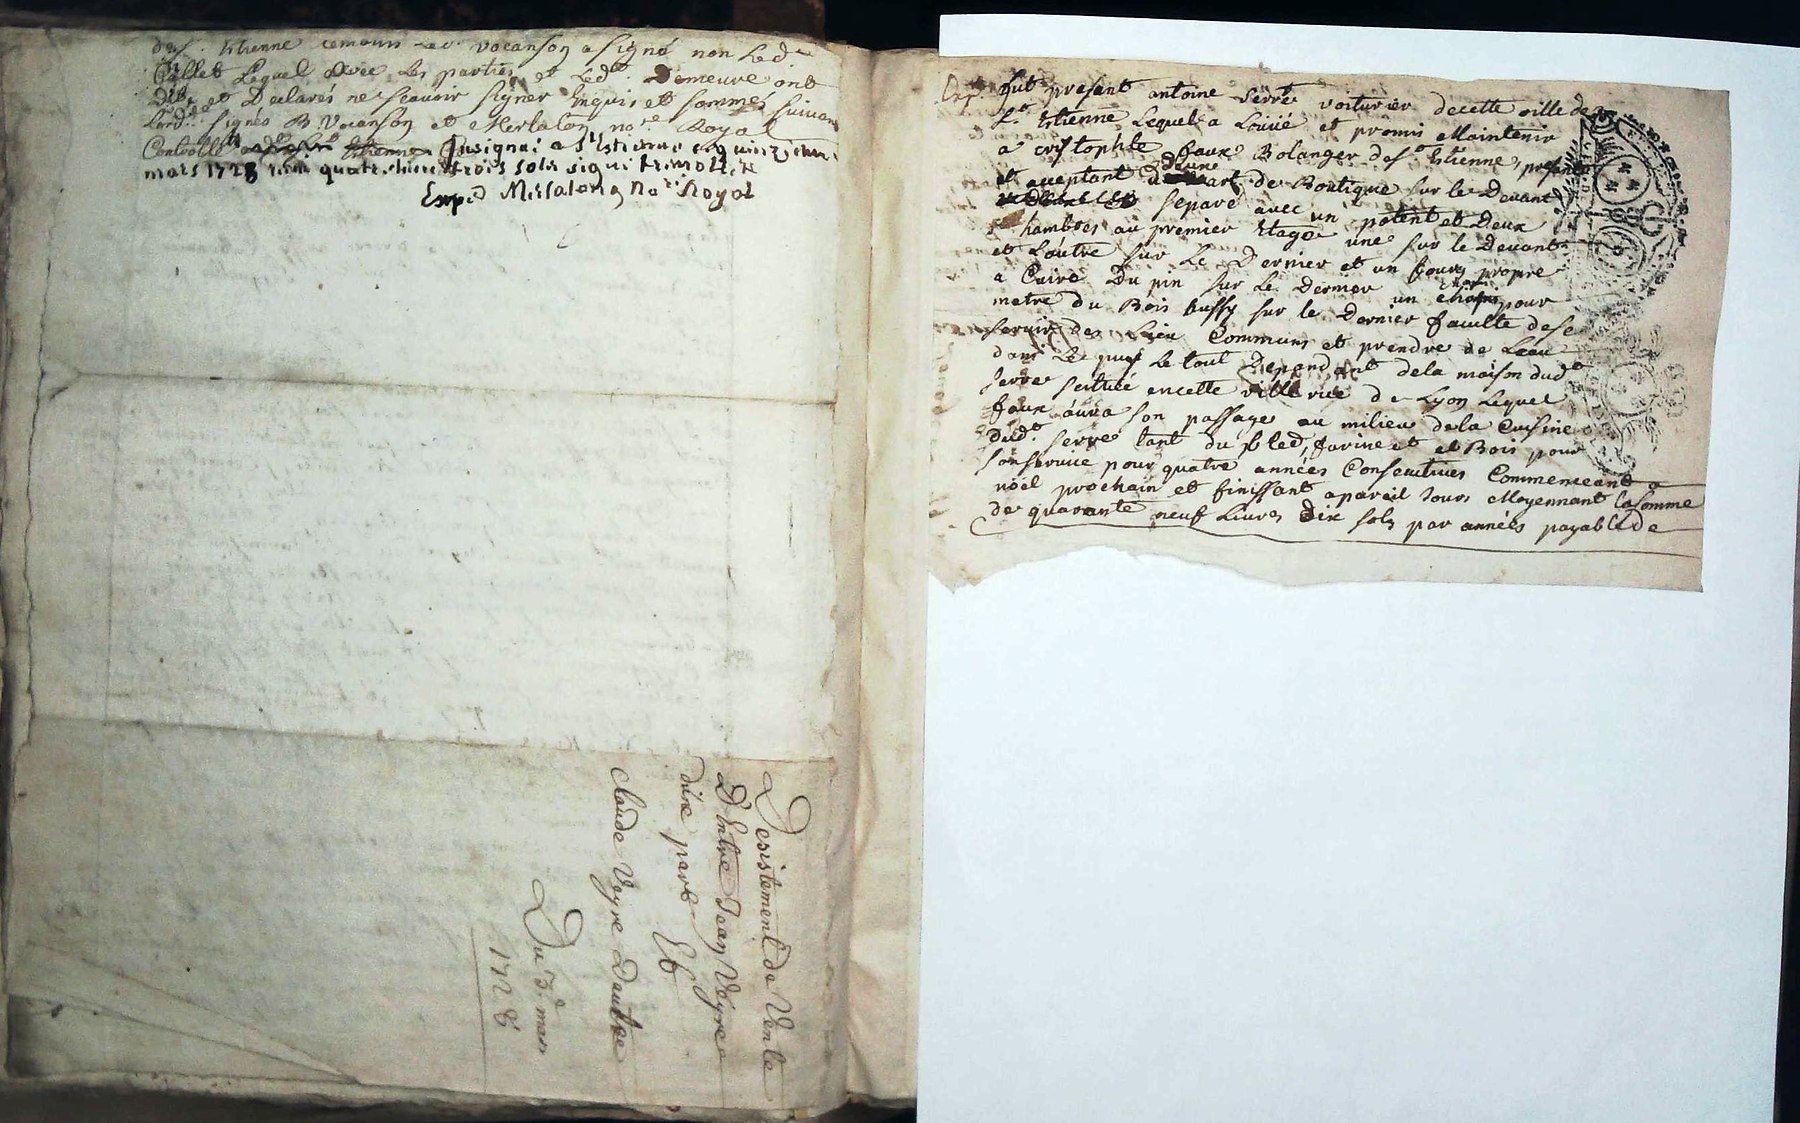 de St. Estienne temoins led. Vocanson a signé non led.
Callet Lequel avec les parties et Led. Demeure ont
dit et Declarés ne scavoir signer Enquis et sommés suivant
Lord. signés B Vocanson et Merlaton no.re Royal
Controllé Insigné a St Estienne quinzieme
mars 1728 quatre livres trois sols signé
Exp.d no.re Royal
Desistement de Vente
D'Entre Jean Veyre
d'une part Et
claude Veyre Dautre
Du 3.e mars
1728
Exp. fut present antoine Serre voiturier de cette ville de
St. Estienne Lequel a Loüé et promis Maintenir
a cristophle faure Bolanger de St. Estienne present
et acceptant de Boutique sur le Devant
separé avec un potent et Deux
chambres au premier Etage une sur le Devant
et Lautre sur Le Dernier et un fourg propre
a Cuire Du pin sur Le Dernier un pour
metre du Bois buffy sur le Dernier faculte de se
servir des Lieu Communs et prendre de Leau
dans Le puys Le tout Dependant de la maison dud.t
serre scittuée en cette ville rüe de Lyon Lequel
faure aura son passage au milieu de la Cuisine
Dud.t serre tant du bled, farine et Bois pour
son service pour quatre années Consecutives Commenceant a
nöel prochain et finissant a pareil Jours Moyennant la somme
de quarante neuf Livres Dix sols par années payable de